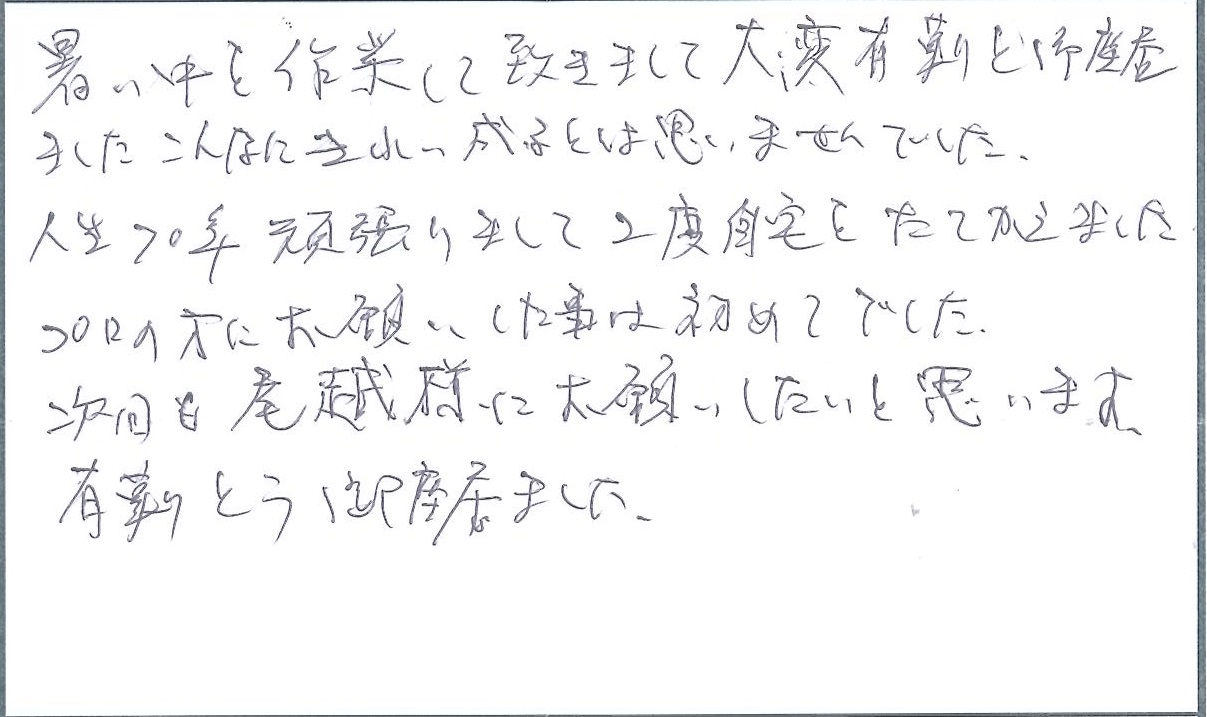 暑い中を作業して致きまして大変有難と御座居
ましたこんなにきれい成るとは思いませんでした、
人生70年頑張りまして2度自宅をたてかえました
プロの方にお願いした事は初めてでした、
次回も尾越様にお願いしたいと思います、
有難とう御座居ました、